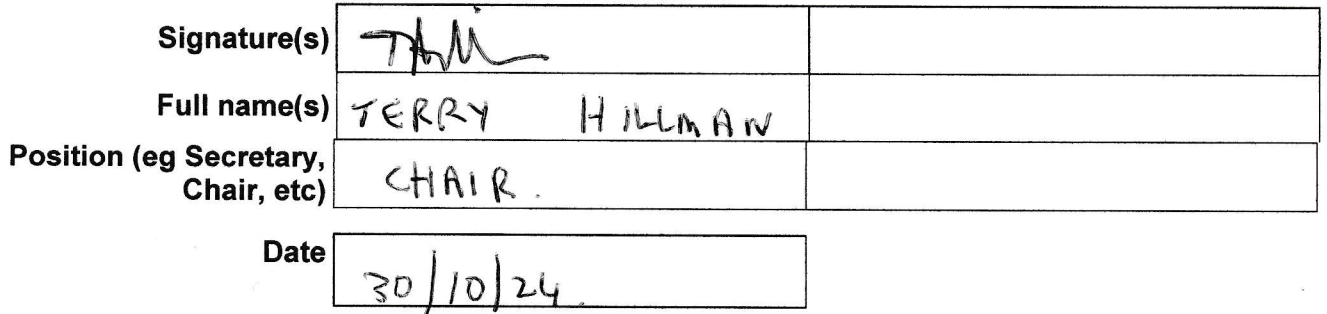 Signature(s)
Full name(s) TERRY HILLMAN
Position (eg Secretary,
Chair, etc) CHAIR.
Date 30/10/24